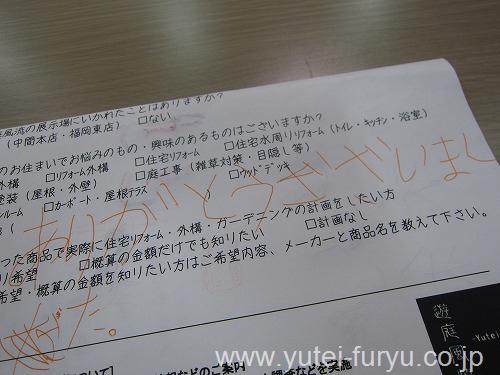 風流の展示場にいかれたことはありますか?
(中間本店・福岡東店) □ない
のお住まいでお悩みのもの・興味のあるものはございますか?
外構 □リフォーム外構 □住宅リフォーム □住宅水周りリフォーム(トイレ・キッチン・浴室)
塗装(屋根・外壁) □庭工事(雑草対策・目隠し等)
ルーム □カーポート・屋根テラス □ウッドデッキ
)
ありがとうございまし
った商品で実際に住宅リフォーム・外構・ガーデニングの計画をしたい方
り希望 □概算の金額だけでも知りたい □計画なし
希望・概算の金額を知りたい方はご希望内容、メーカーと商品名を教えて下さい。
た。
遊庭風
-Yutei-
www.yutei-furyu.co.jp